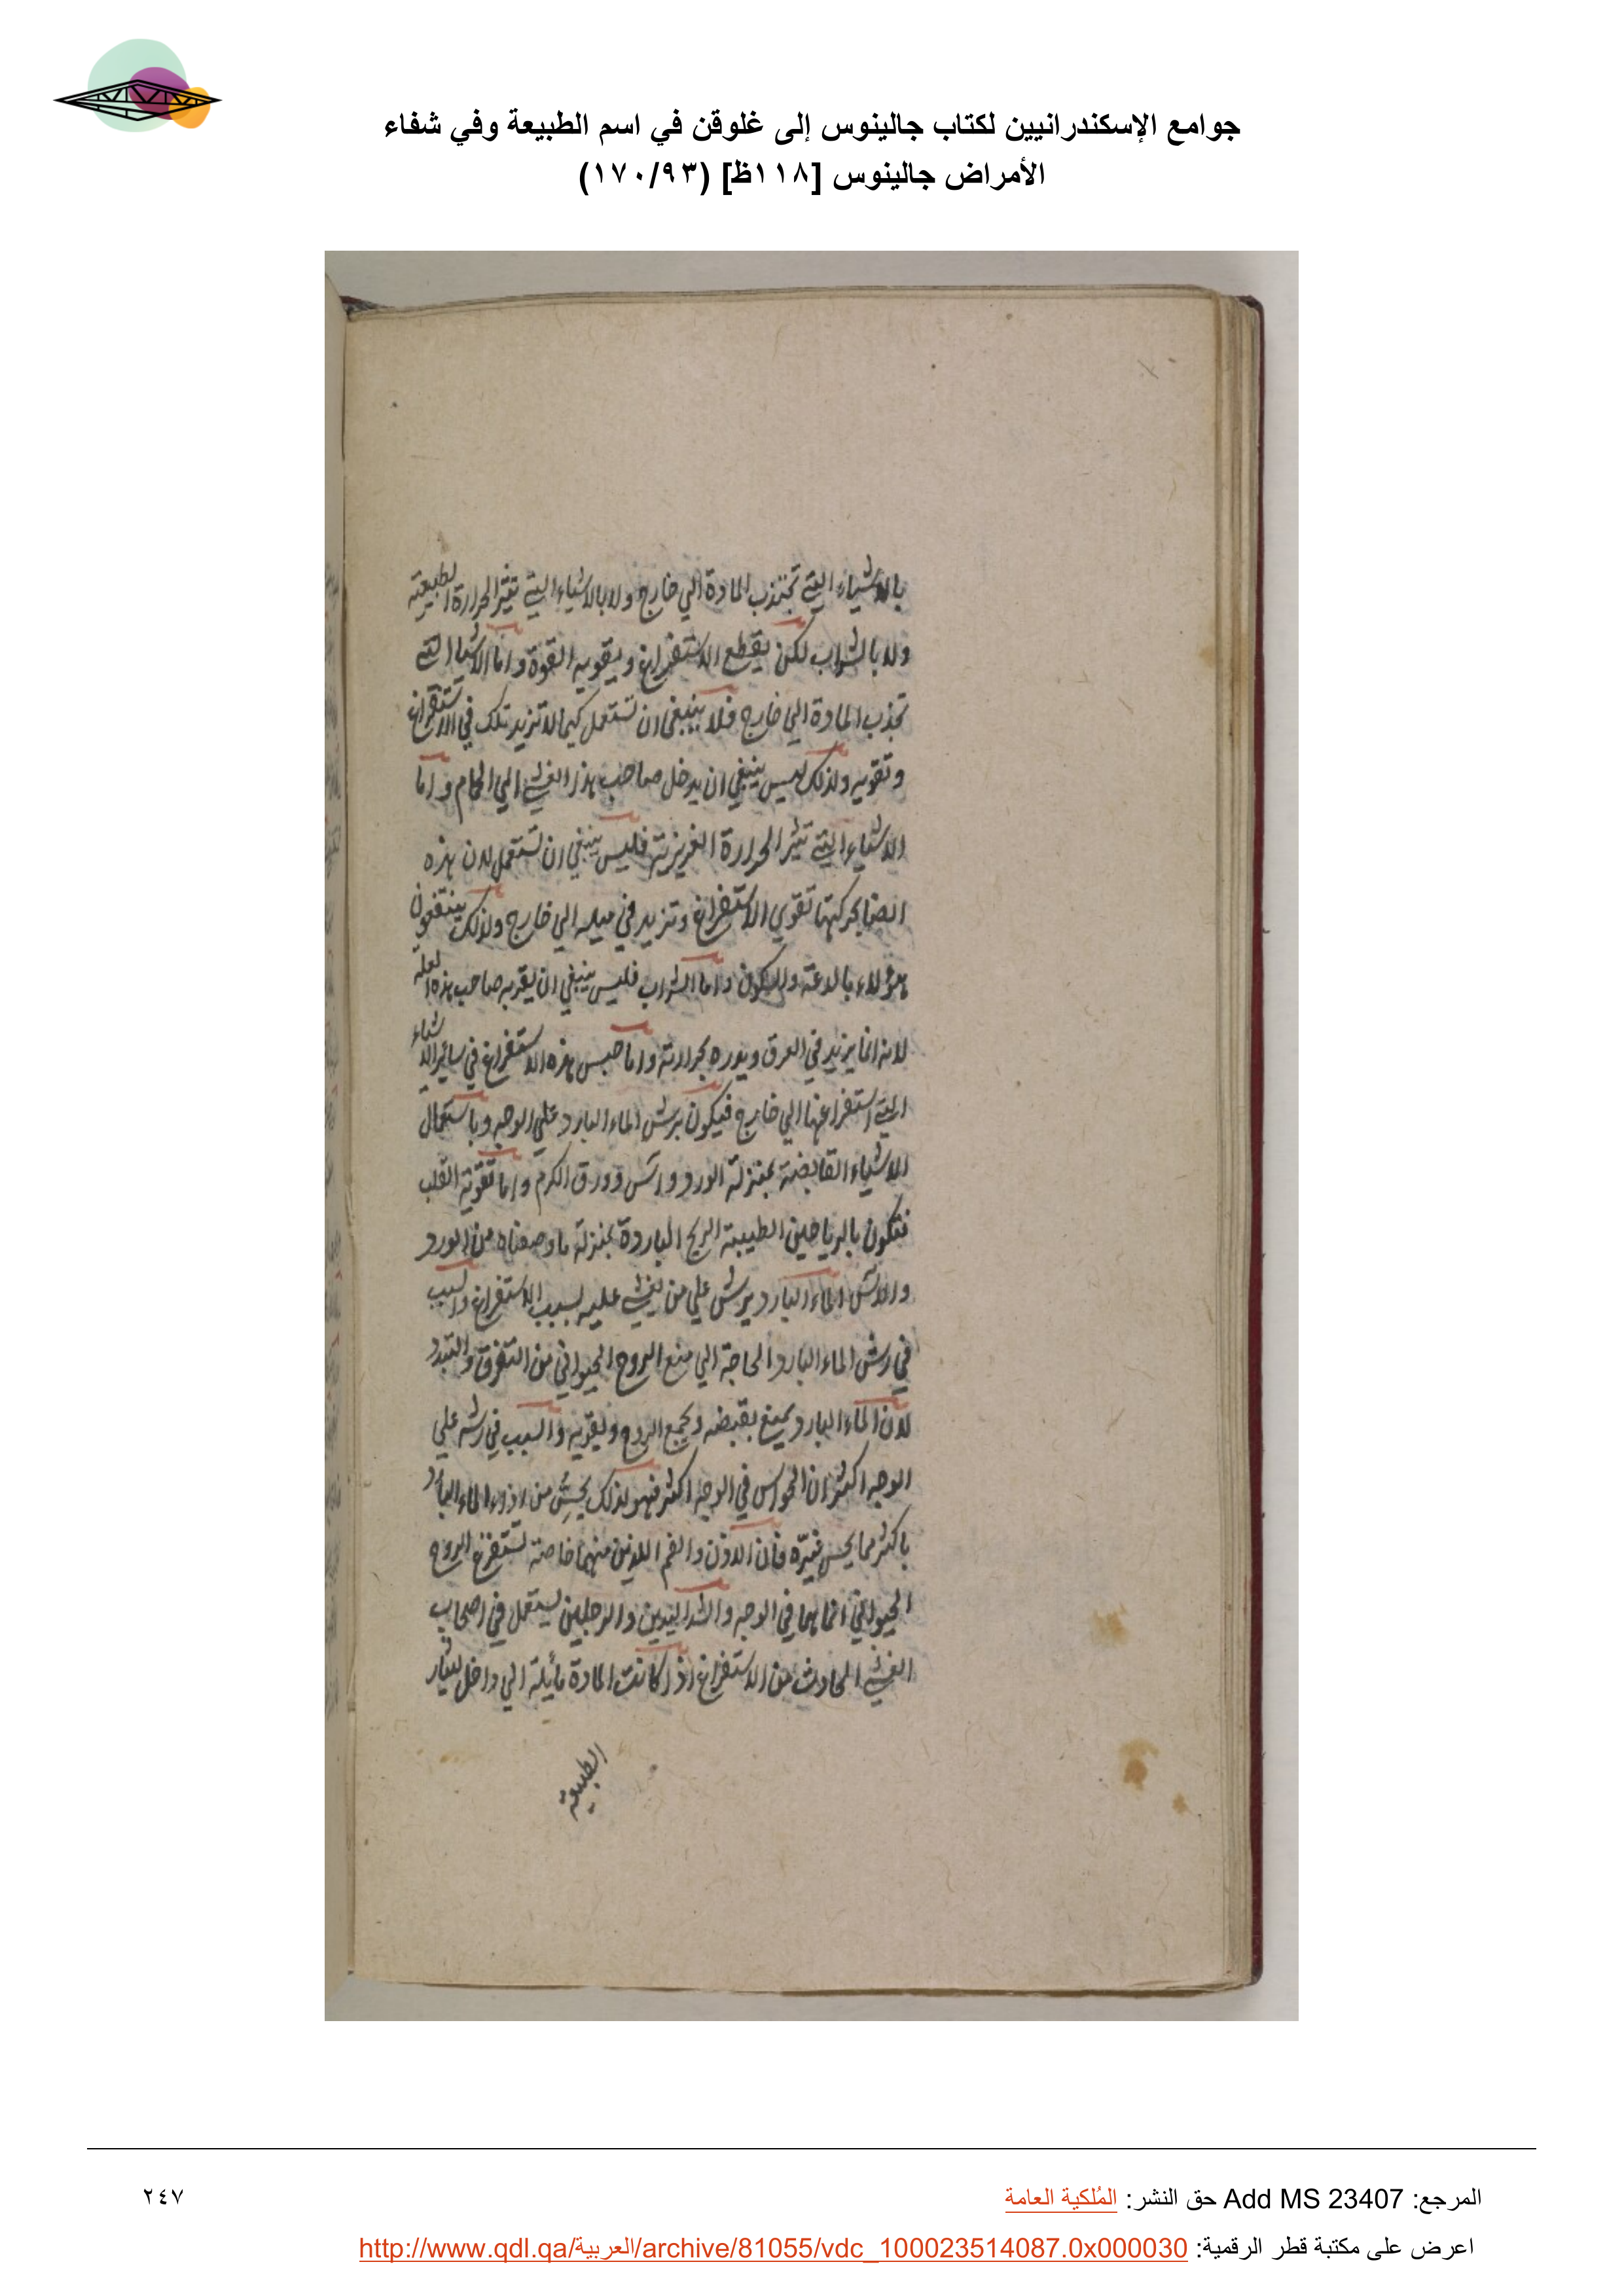 جوامع الإسكندرانيين لكتاب جالينوس إلى غلوقن في اسم الطبيعة وفي شفاء
الأمراض جالينوس [١١٨ظ] (١٧٠/٩٣)
بالاشياء التي تجتذب المادة الي خارج ولا بالاشياء التي تثير الحرارة الطبيعية
ولا بالشراب لكن بقطع الاستفراغ وبتقوية القوة واما الاشيا التي
تجذب المادة الي خارج فلا ينبغي ان تستعمل كيما لا تزيد تلك في الاستفراغ
وتقويه ولذلك ليس ينبغي ان يدخل صاحب هذا الغشي الي الحمام واما
الاشياء التي تثير الحرارة الغريزية فليس ينبغي ان تستعمل لان هذه
ايضا بحركتها تقوي الاستفراغ وتزيد في ميله الي خارج ولذلك ينتفعون
هؤلاء بالدعة والسكون واما الشراب فليس ينبغي ان يقربه صاحب هذه العلة
لانه انما يزيد في العرق ويدره بحرارته واما حبس هذه الاستفراغ في ساير الاشياء
التي استفراغها الي خارج فيكون برش الماء البارد علي الوجه وباستعمال
الاشياء القابضة بمنزلة الورد وآس وورق الكرم واما تقوية القلب
فتكون بالرياحين الطيبة الريح الباردة بمنزلة ما وصفناه من الورد
والآس الماء البارد يرش علي من يغشي عليه بسبب الاستفراغ والسبب
في رش الماء البارد الحاجة الي منع الروح الحيواني من التفرق والتبدد
لان الماء البارد يمنع بقبضه ويجمع الروح ويقويه والسبب في رشه علي
الوجه اكثر ان الحواس في الوجه اكثر فهو لذلك يحس من اذي الماء البارد
باكثر مما يحس غيره فان الاذن والفم اللذين منهما خاصة تستفرغ الروح
الحيواني انما هما في الوجه والشد اليدين والرجلين يستعمل في اصحاب
الغشي الحادث من الاستفراغ اذا كانت المادة مايلة الي داخل ليثار
الطبيعة
المرجع: Add MS 23407 حق النشر: المُلكية العامة
٢٤٧
اعرض على مكتبة قطر الرقمية: http://www.qdl.qa/العربية/archive/81055/vdc_100023514087.0x000030